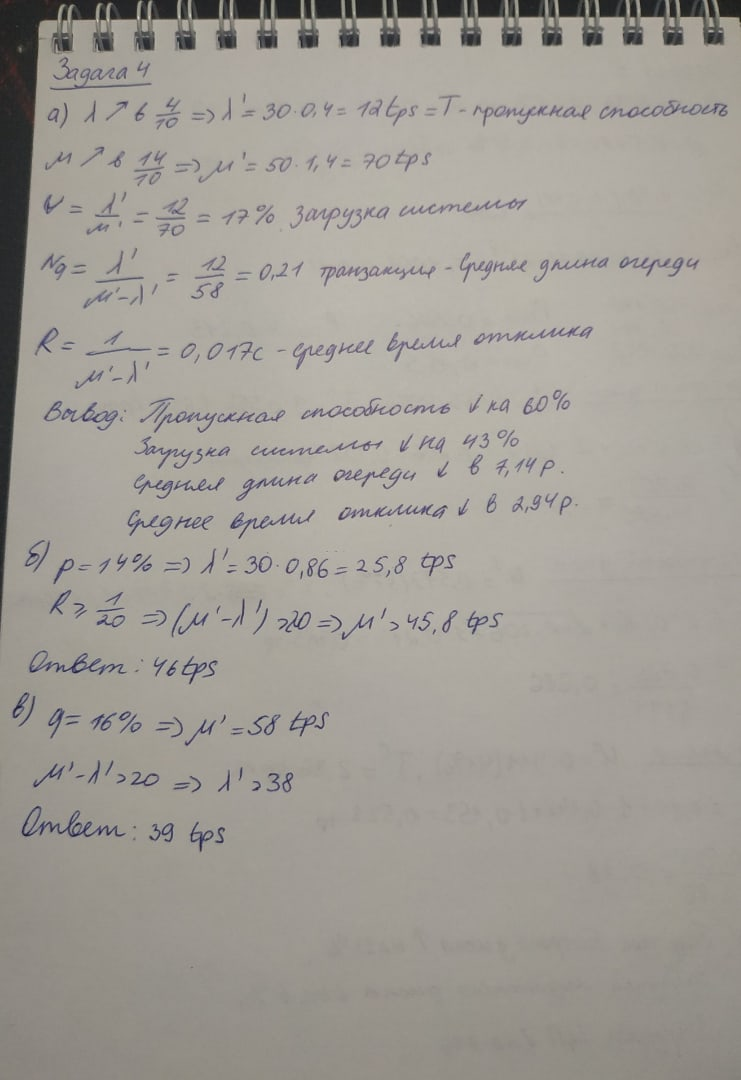 Задача 4
а) λ ↗ в 4/10 => λ' = 30·0,4 = 12 tps = T - пропускная способность
μ ↗ в 14/10 => μ' = 50·1,4 = 70 tps
U = λ'/μ' = 12/70 = 17% Загрузка системы
Nq = λ'/(μ'-λ') = 12/58 = 0,21 транзакция - Средняя длина очереди
R = 1/(μ'-λ') = 0,017с - среднее время отклика
Вывод: Пропускная способность ↓ на 60%
Загрузка системы ↓ на 43%
Средняя длина очереди ↓ в 7,14 р.
Среднее время отклика ↓ в 2,94 р.
б) p = 14% => λ' = 30·0,86 = 25,8 tps
R ≥ 1/20 => (μ'-λ') > 20 => μ' > 45,8 tps
Ответ: 46 tps
в) q = 16% => μ' = 58 tps
μ'-λ' > 20 => λ' > 38
Ответ: 39 tps